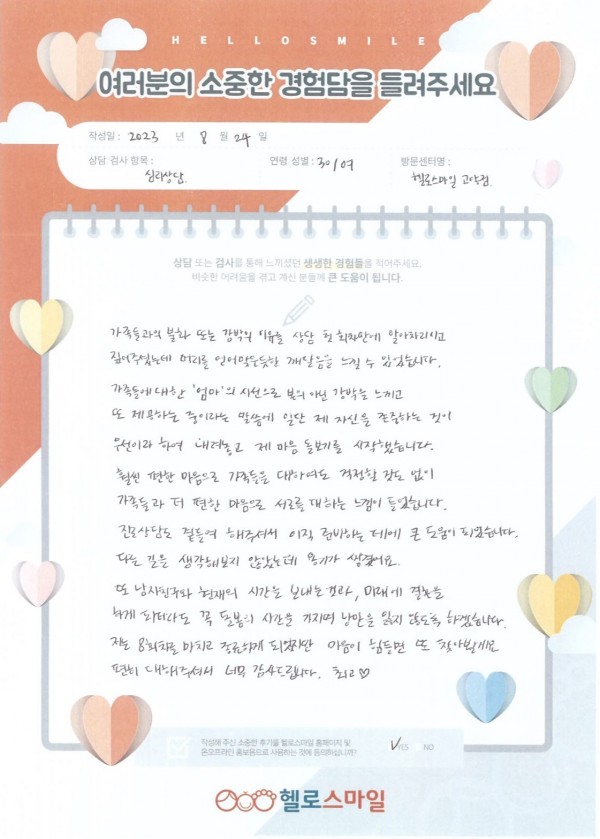 HELLOSMILE
여러분의 소중한 경험담을 들려주세요
작성일 : 2023 년 8 월 24 일
상담 검사 항목 : 심리상담. 연령 성별 : 30/여 방문센터명 : 헬로스마일 고양점.
상담 또는 검사를 통해 느끼셨던 생생한 경험들을 적어주세요.
비슷한 어려움을 겪고 계신 분들께 큰 도움이 됩니다.
가족들과의 불화 또는 강박의 이유를 상담 첫 회차만에 알아차리시고
짚어주셨는데 머리를 얻어맞은듯한 깨달음을 느낄 수 있었습니다.
가족들에 대한 '엄마'의 시선으로 본의 아닌 강박을 느끼고
또 제공하는 중이라는 말씀에 일단 제 자신을 존중하는 것이
우선이라 하여 내려놓고 제 마음 돌보기를 시작했습니다.
훨씬 편한 마음으로 가족들을 대하여도 걱정할 것도 없이
가족들과 더 편한 마음으로 서로를 대하는 느낌이 들었습니다.
진로상담도 곁들여 해주셔서 이직 준비하는 데에 큰 도움이 되었습니다.
다른 길은 생각해보지 않았는데 용기가 생겼어요.
또 남자친구와 현재의 시간을 보내는 결과, 미래에 결혼을
하게 되더라도 꼭 둘만의 시간을 가지며 낭만을 잃지 않도록 하겠습니다.
저는 8회차를 마치고 종료하게 되었지만 마음이 힘들면 또 찾아뵐게요
편히 대해주셔서 너무 감사드립니다. 최고♡
작성해 주신 소중한 후기를 헬로스마일 홈페이지 및
온오프라인 홍보용으로 사용하는 것에 동의하십니까?
YES NO
헬로스마일